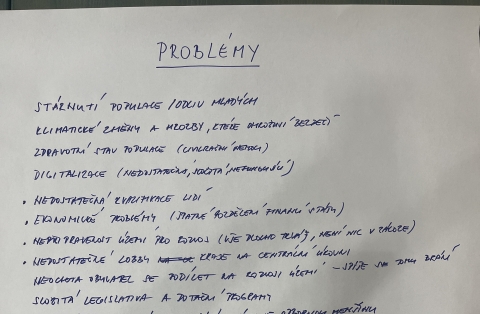 PROBLÉMY
STÁRNUTÍ POPULACE / ODLIV MLADÝCH
KLIMATICKÉ ZMĚNY A HROZBY, KTERÉ OHROŽUJÍ BEZPEČÍ
ZDRAVOTNÍ STAV POPULACE (CIVILIZAČNÍ NEMOCI)
DIGITALIZACE (NEDOSTATEČNÁ, SLOŽITÁ, NEFUNKČNÍ)
• NEDOSTATEČNÁ KVALIFIKACE LIDÍ
• EKONOMICKÉ PROBLÉMY (ŠPATNÉ ROZDĚLENÍ FINANCÍ STÁTU)
• NEPŘIPRAVENOST ÚZEMÍ PRO ROZVOJ (VŠE DLOUHO TRVÁ, NENÍ NIC V ZÁLOZE)
• NEDOSTATEČNÉ LOBBY KRAJE NA CENTRÁLNÍ ÚROVNI
NEOCHOTA OBYVATEL SE PODÍLET NA ROZVOJI ÚZEMÍ – SPÍŠE SE TOMU BRÁNÍ
SLOŽITÁ LEGISLATIVA A DOTAČNÍ PROGRAMY